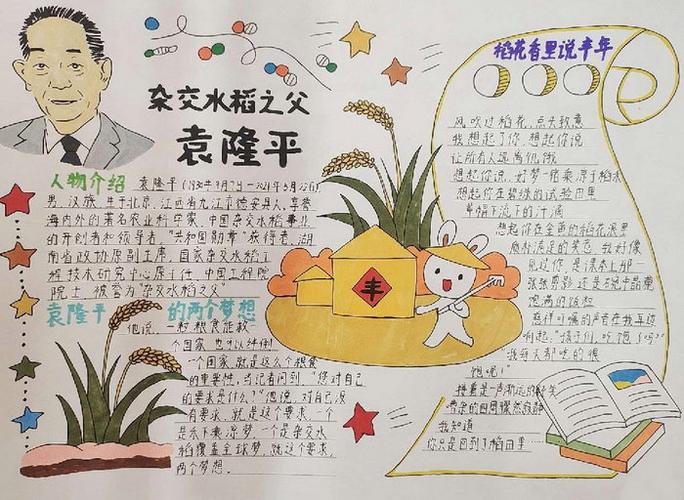 杂交水稻之父
袁隆平
人物介绍
袁隆平(1930年9月7日-2021年5月22日)
男,汉族,生于北京,江西省九江市德安县人,享誉
海内外的著名农业科学家,中国杂交水稻事业
的开创者和领导者,“共和国勋章”获得者,湖
南省政协原副主席,国家杂交水稻工
程技术研究中心原主任,中国工程院
院士,被誉为“杂交水稻之父”
袁隆平的两个梦想
他说,一粒粮食能救一
个国家,也可以绊倒
一个国家,就是这么个粮食
的重要性,当记者问到,“您对自己
的要求是什么?”他说,对自己没
有要求,就是这个要求,一个
是禾下乘凉梦,一个是杂交水
稻覆盖全球梦,就这个要求,
两个梦想。
丰
稻花香里说丰年
风吹过稻花,点头致意
我想起了你,想起你说
让所有人远离饥饿
想起你说,好梦
想起你在碧绿的试验田里
流下的汗滴
想起你在金黄的稻花浪里
质朴满足的笑意,我好像
见过你,是课本上那
张张剪影还是
饱满的饭粒
慈祥叮嘱的声音在我耳边
响起,“孩子们,吃饱了吗?”
饱
我知道
你只是回到了稻田里……